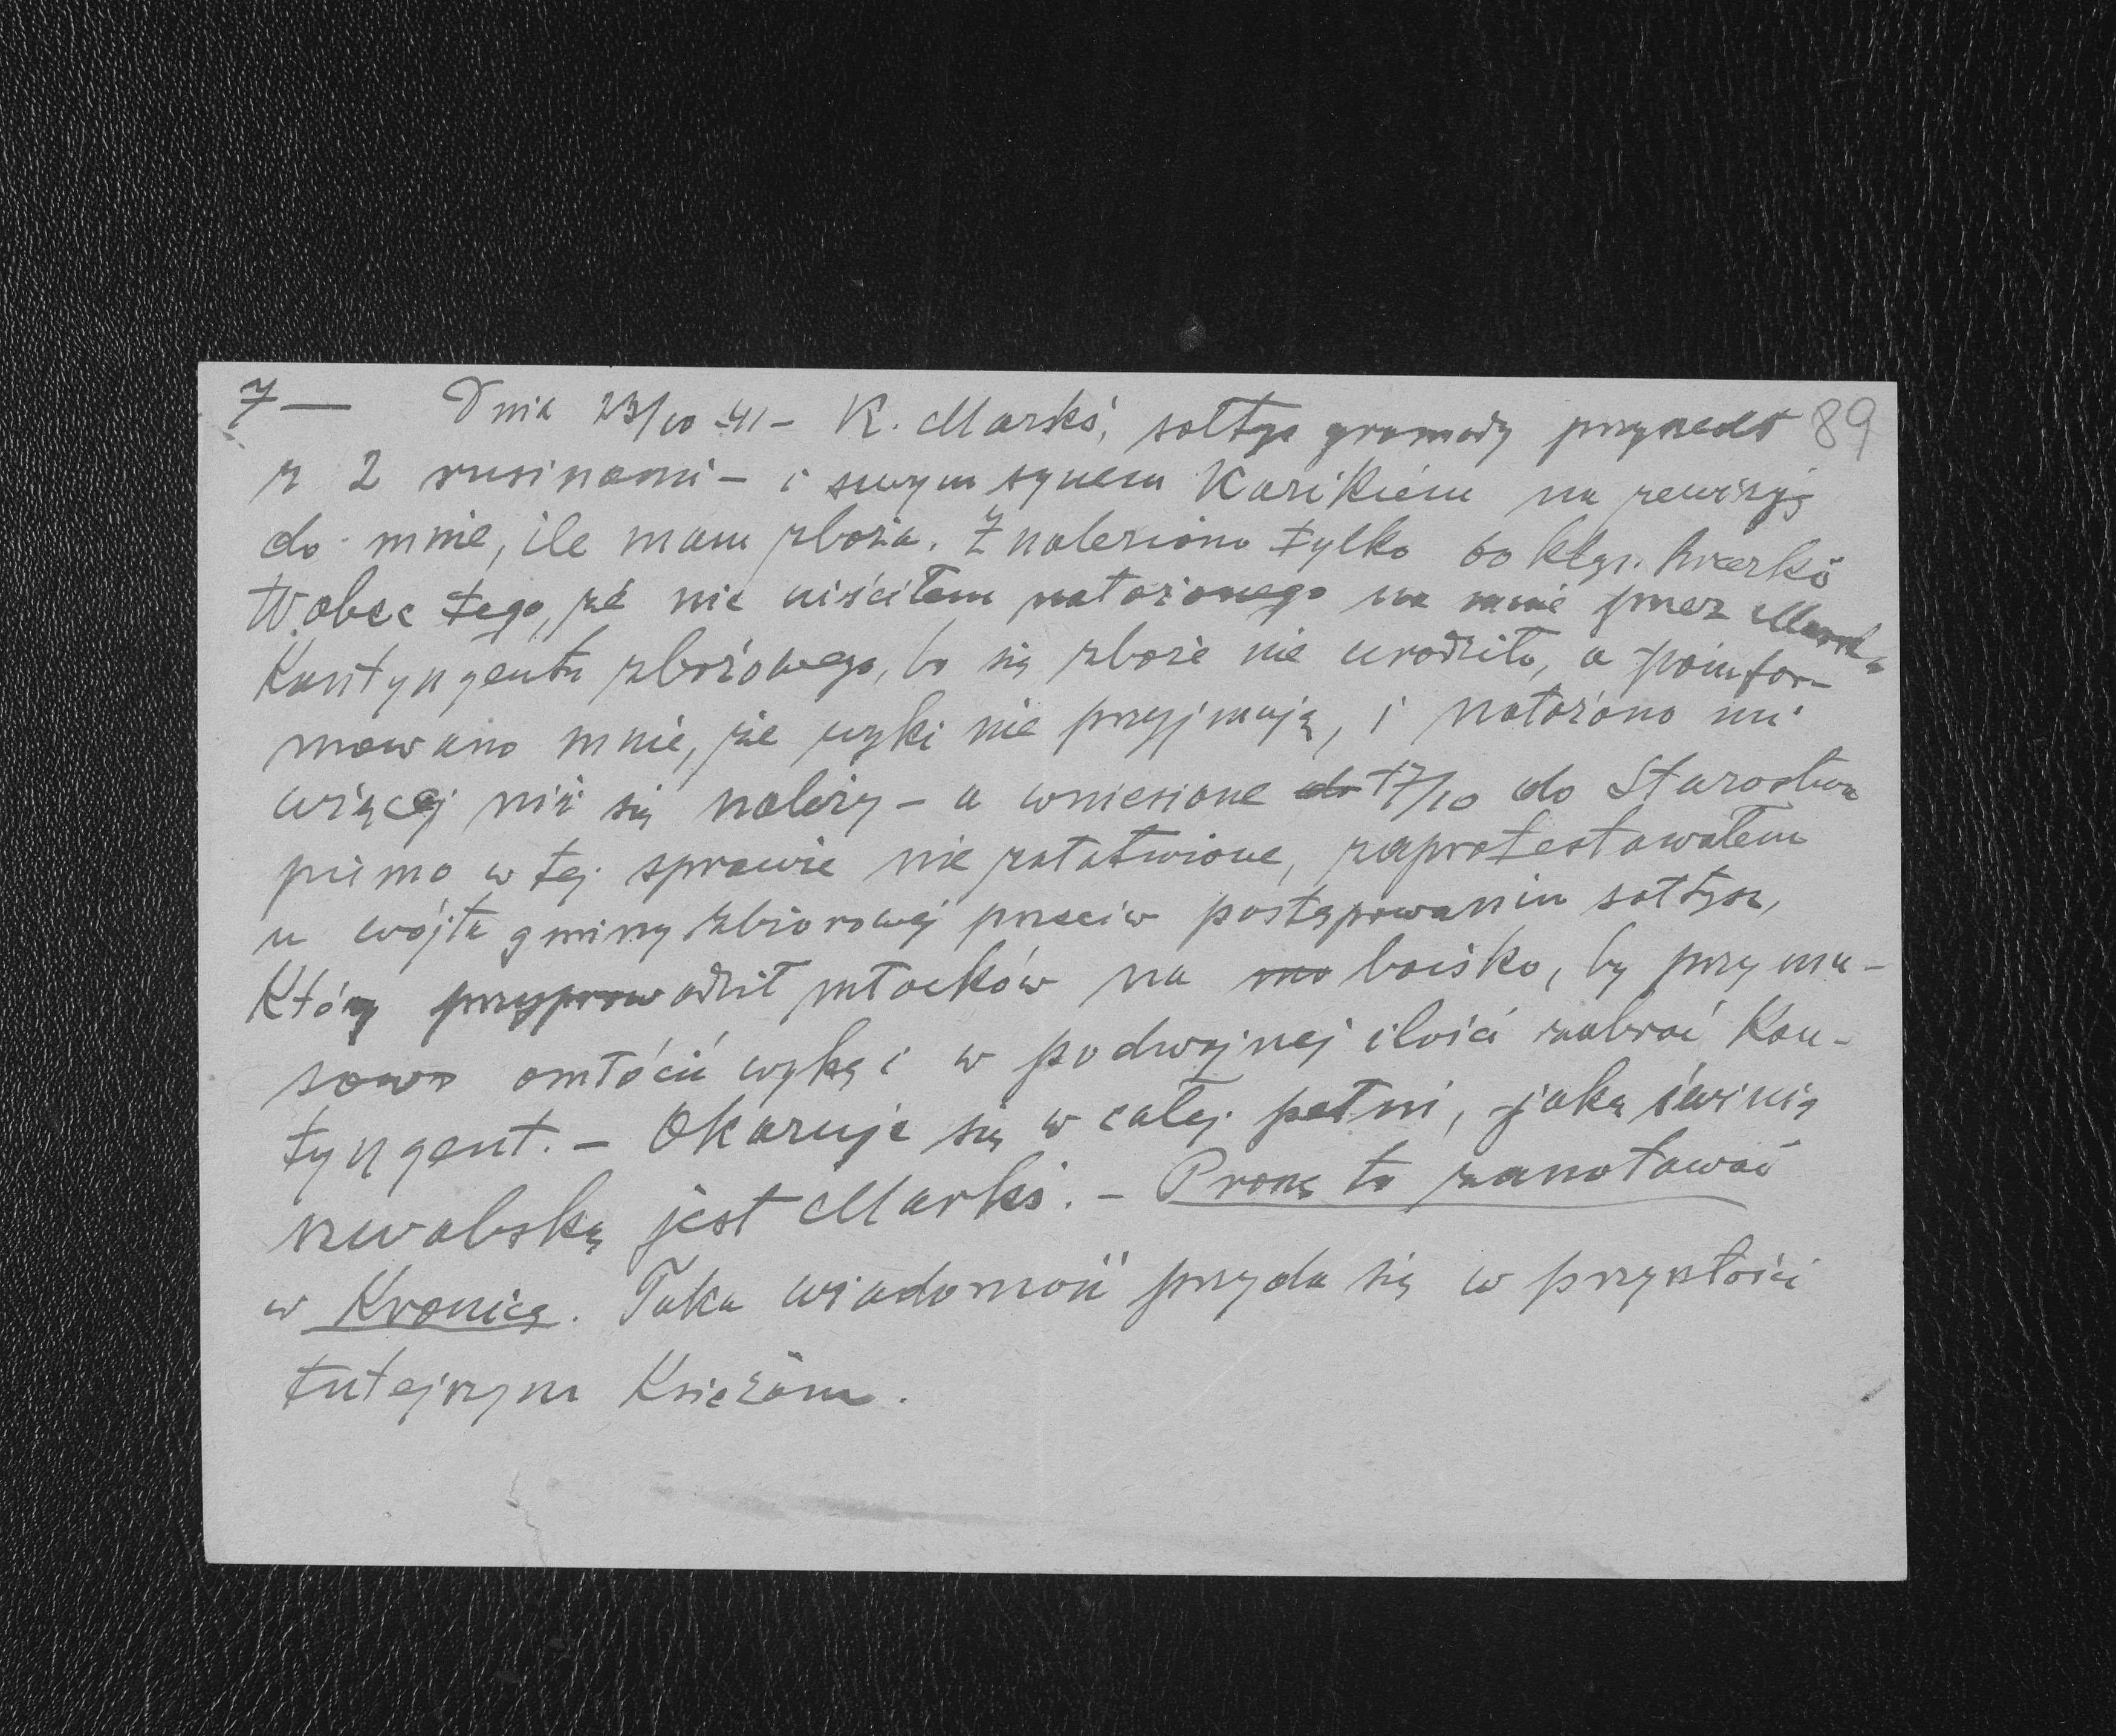 7 — Dnia 23/10 41 – K. Markś, sołtys gromady przyszedł 89
z 2 rusinami – i swym synem Kazikiem na rewizję
do mnie, ile mam zboża. Znaleziono tylko 60 klgr.
Wobec tego, że nie uiściłem nałożonego na mnie przez
Kontyngentu zbożowego, bo się zboże nie urodziło, a poinfor-
mowano mnie, że wyki nie przyjmują, i nałożono mi
więcej niż się należy – a wniesione do 17/10 do Starostwa
pismo w tej sprawie nie załatwione, zaprotestowałem
u wójta gminy zbiorowej przeciw postępowaniu sołtysa,
Który przyprowadził młocków na boisko, by przymu-
sowo omłócić wykę i w podwójnej ilości zabrać Kon-
tyngent. – Okazuje się w całej pełni, jaką świnią
szwabską jest Markś. – Proszę to zanotować
w Kronicę. Taka wiadomość przyda się w przyszłości
tutejszym Księżom.